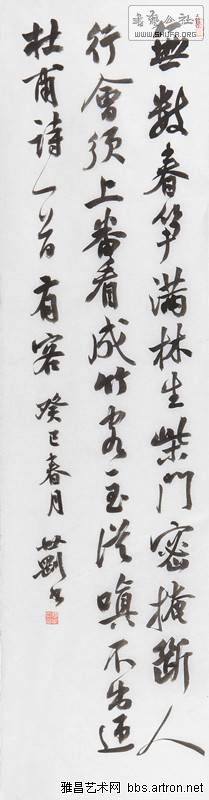 書藝公社
WWW.SHUFA.ORG
無數春笋满林生柴門密掩斷人
行會須上番看成竹客至從嗔不出迎
杜甫诗一首有客癸巳春月
雅昌艺术网 bbs.artron.net